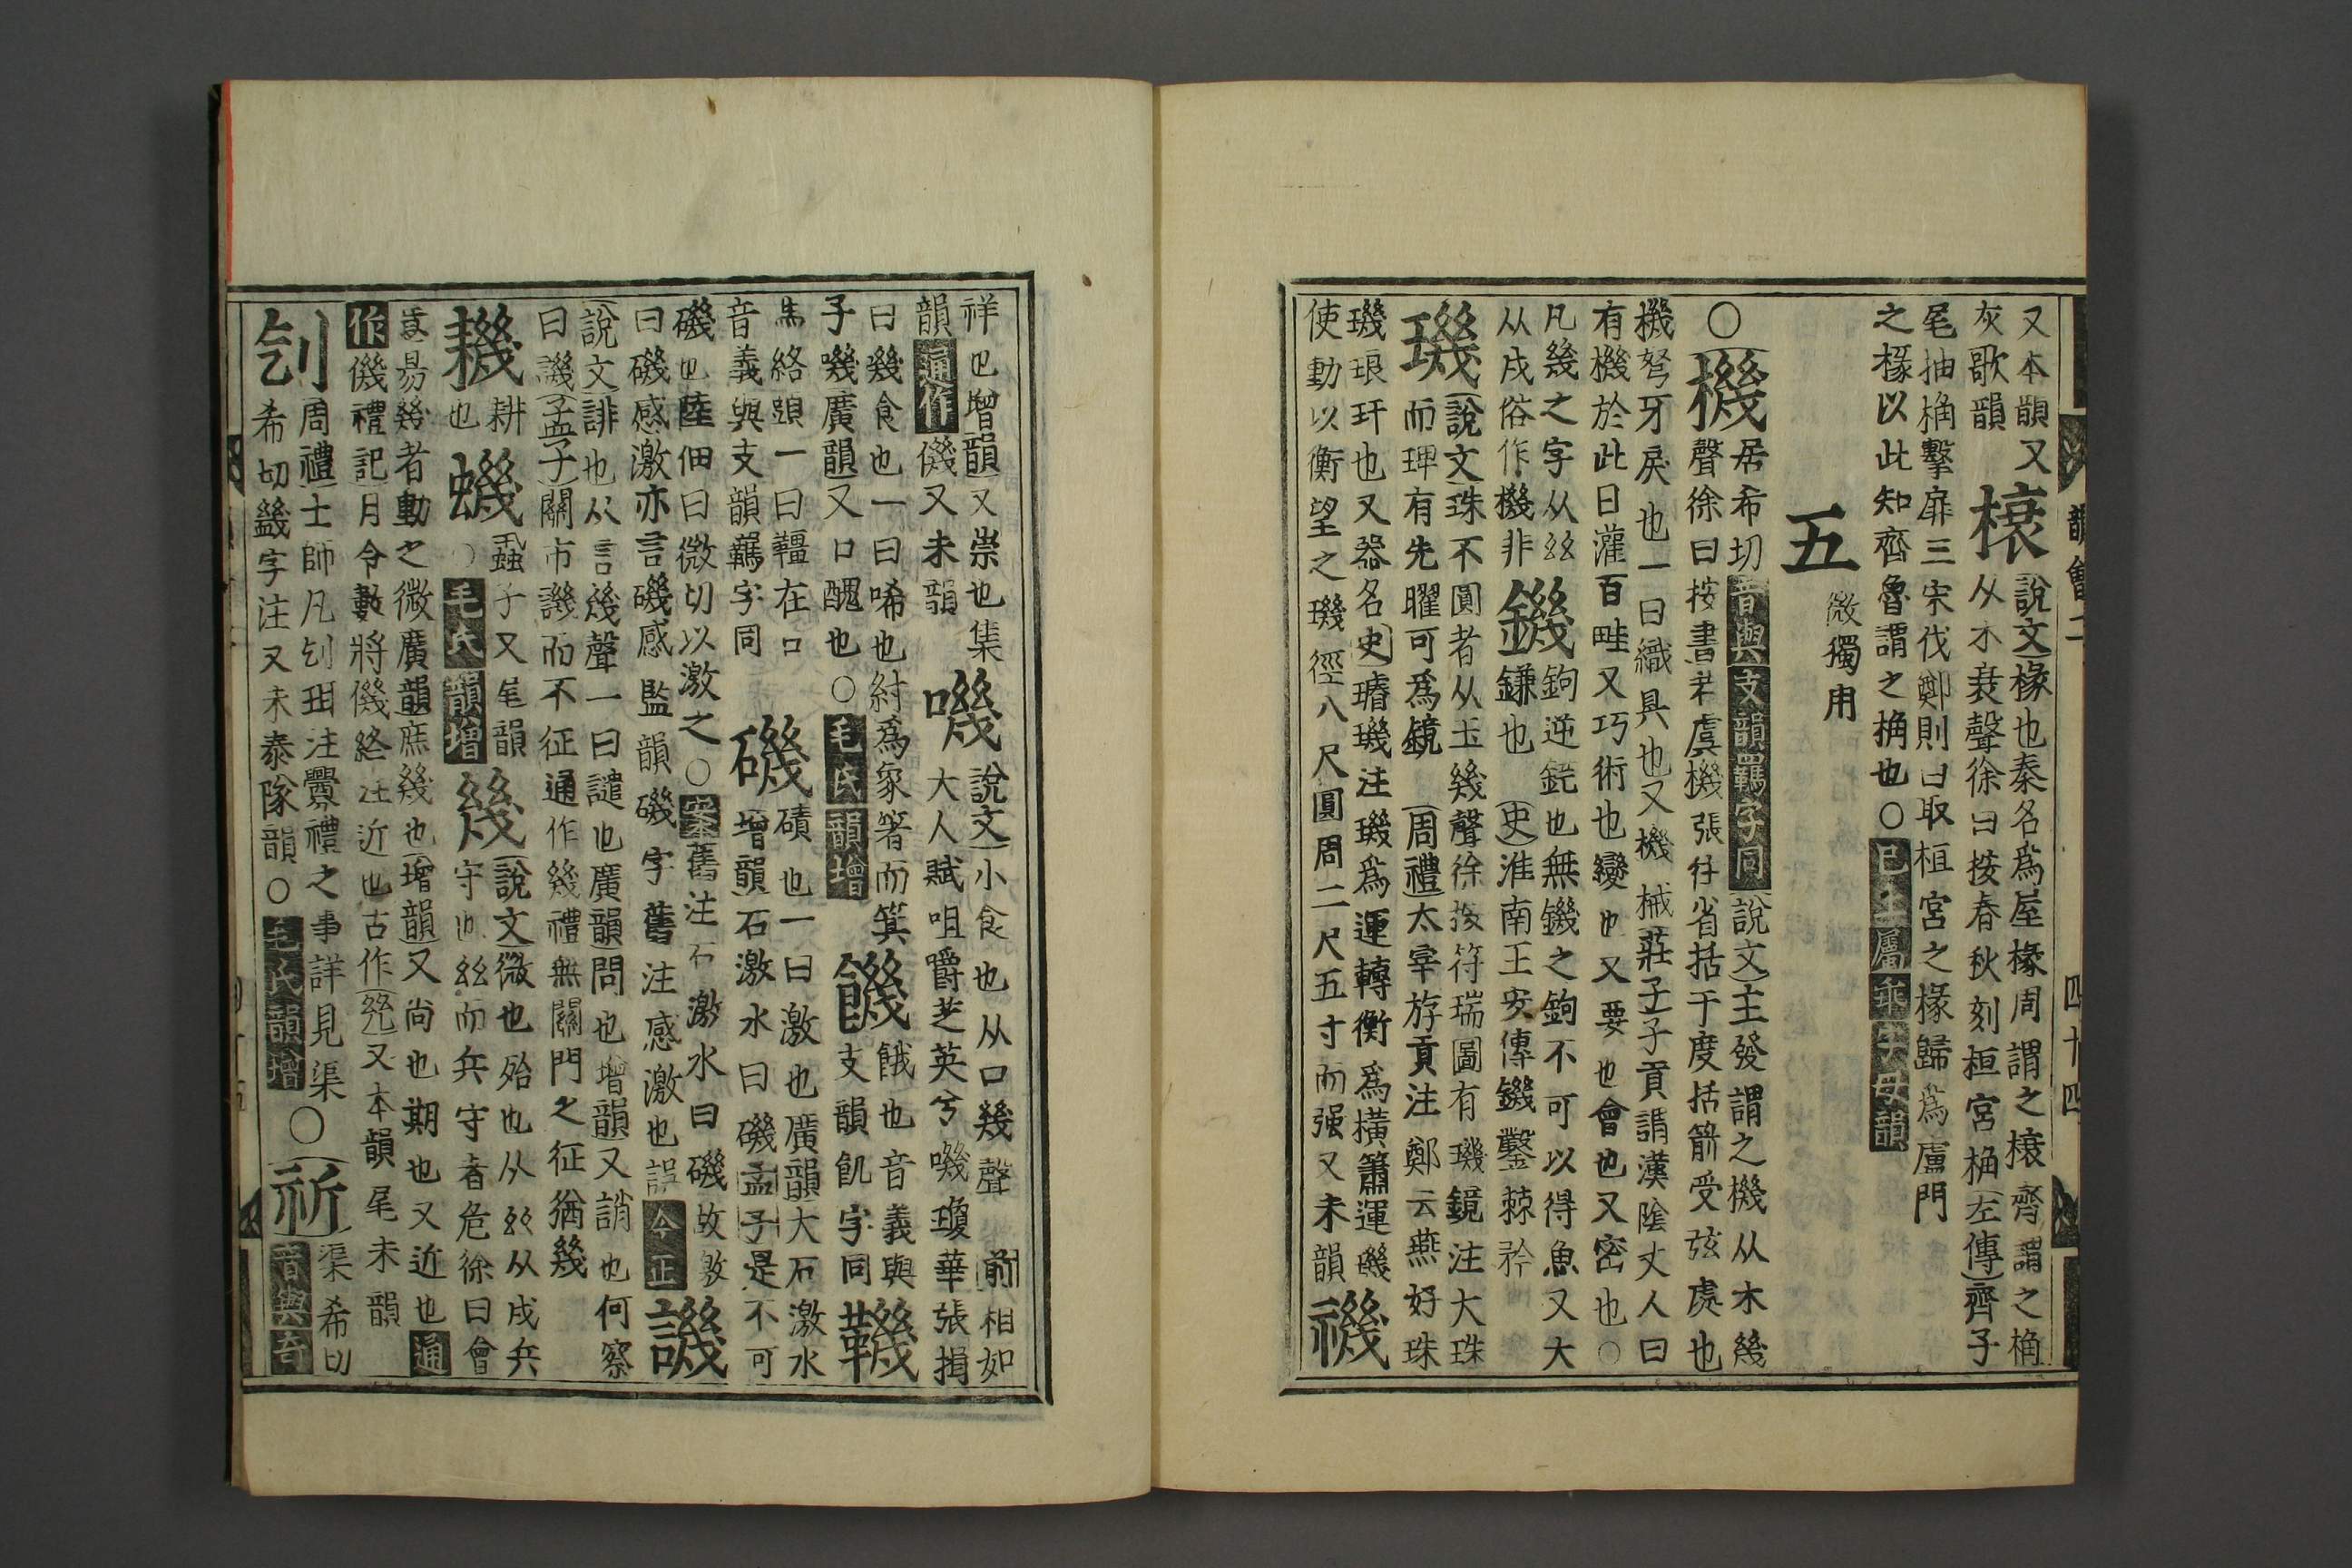 又本韻又
灰歌韻
榱
說文椽也秦名為屋椽周謂之榱齊謂之桷
从木衰聲徐曰按春秋刻桓宮桷左傳齊子
尾抽桷擊扉三宋伐鄭則曰取桓宮之椽歸為廬門
之椽以此知齊魯謂之桷也〇已上屬乖字母韻
五
微獨用
〇機
居希切音與支韻羈字同說文主發謂之機从木幾
聲徐曰按書若虞機張往省括于度括箭受弦處也
機弩牙戾也一曰織具也又機械莊子子貢謂漢陰丈人曰
有機於此日灌百畦又巧術也變也又要也會也又密也〇
凡幾之字从𢆶
从戍俗作機非
鐖
鉤逆鋩也無鐖之鉤不可以得魚又大
鎌也史淮南王安傳鐖鑿棘矜
璣
說文珠不圓者从玉幾聲徐按符瑞圖有璣鏡注大珠
而琕有先曜可為鏡周禮太宰斿貢注鄭云燕好珠
璣琅玕也又器名史璿璣注璣為運轉衡為橫簫運璣
使動以衡望之璣徑八尺圓周二尺五寸而强又未韻
禨
祥也增韻又祟也集
韻通作僟又未韻
嘰
說文小食也从口幾聲前相如
大人賦咀嚼芝英兮嘰瓊華張揖
曰幾食也一曰唏也紂為象箸而箕
子嘰廣韻又口醜也〇毛氏韻增
饑
餓也音義與
支韻飢字同
鞿
馬絡頭一曰韁在口
音義與支韻羈字同
磯
磧也一曰激也廣韻大石激水
增韻石激水曰磯孟子是不可
磯也陸佃曰微切以激之〇案舊注石激水曰磯故激
曰磯感激亦言磯感監韻磯字舊注感激也誤今正
譏
說文誹也从言幾聲一曰譴也廣韻問也增韻又誚也何察
曰譏孟子關市譏而不征通作幾禮無關門之征猶幾
耭
耕
也
蟣
蝨子又尾韻
〇毛氏韻增
幾
說文微也殆也从𢆶从戍兵
守也𢆶而兵守者危徐曰會
意易幾者動之微廣韻庶幾也增韻又尚也期也又近也通
作僟禮記月令數將僟終注近也古作㡬又本韻尾未韻
刉
周禮士師凡刉珥注釁禮之事詳見渠
希切䰇字注又未泰隊韻〇毛氏韻增
〇祈
渠希切
音與奇
韻會二
四十四